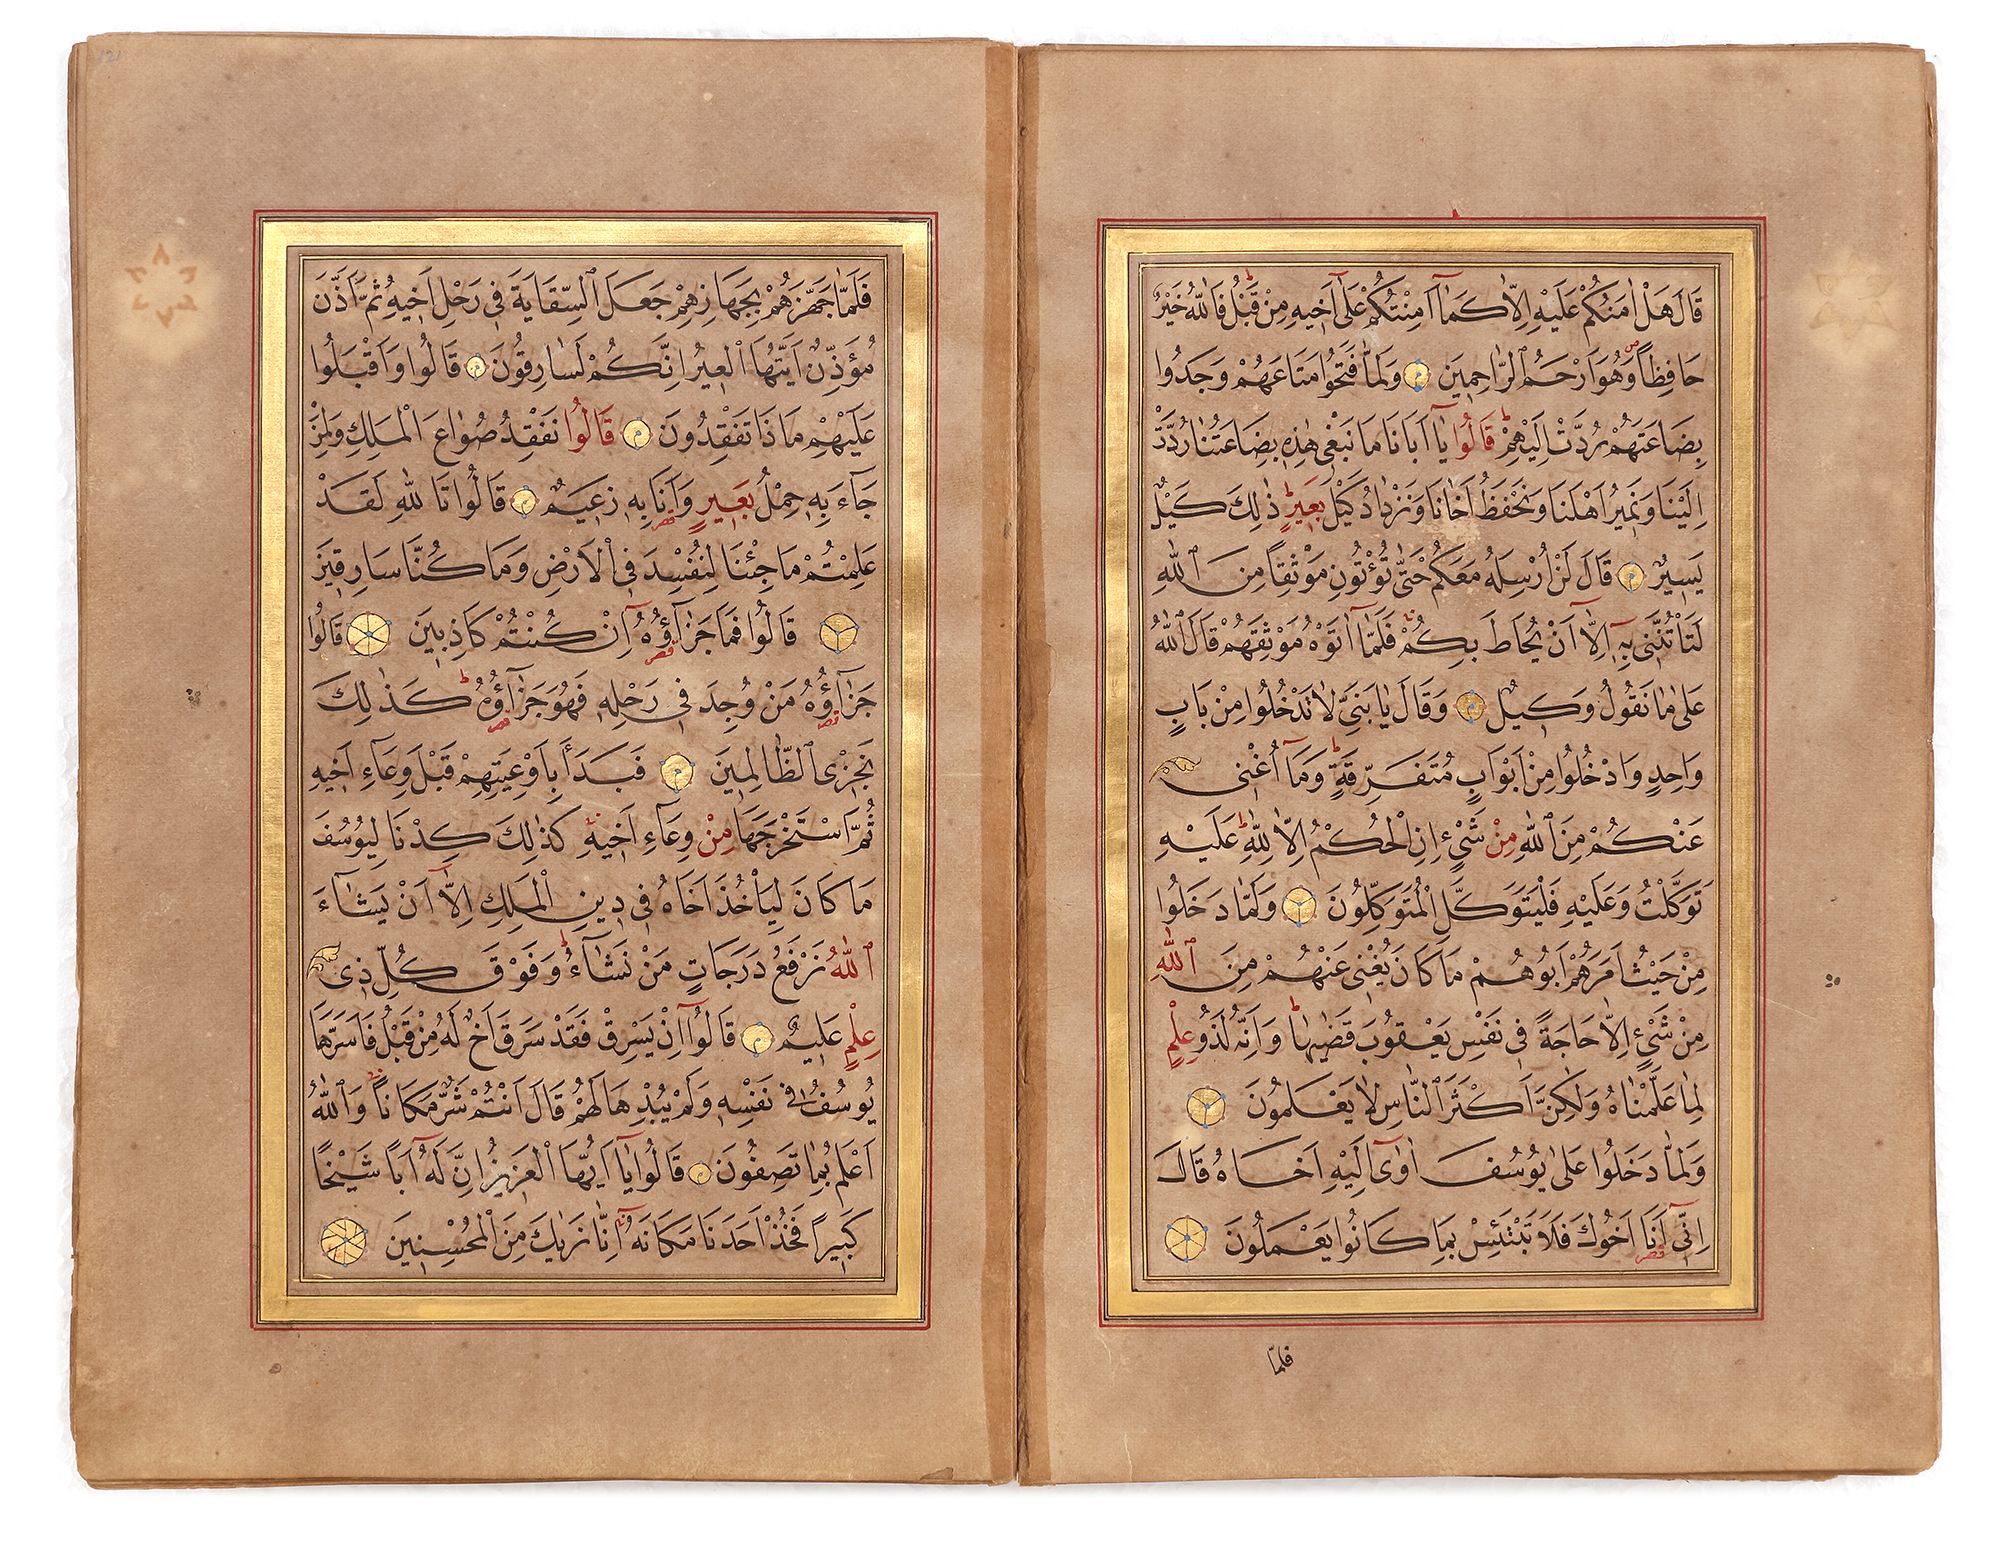 قَالَ هَلْ اٰمَنُكُمْ عَلَيْهِ اِلَّا كَمَآ اَمِنْتُكُمْ عَلٰٓى اَخِيهِ مِنْ قَبْلُ فَاللّٰهُ خَيْرٌ
حَافِظًا وَهُوَ اَرْحَمُ الرَّاحِمِينَ وَلَمَّا فَتَحُوا مَتَاعَهُمْ وَجَدُوا
بِضَاعَتَهُمْ رُدَّتْ اِلَيْهِمْ قَالُوا يَٓا اَبَانَا مَا نَبْغٖى هٰذِهٖ بِضَاعَتُنَا رُدَّتْ
اِلَيْنَا وَنَمِيرُ اَهْلَنَا وَنَحْفَظُ اَخَانَا وَنَزْدَادُ كَيْلَ بَعِيرٍ ذٰلِكَ كَيْلٌ
يَسِيرٌ قَالَ لَنْ اُرْسِلَهُ مَعَكُمْ حَتّٰى تُؤْتُونِ مَوْثِقًا مِنَ اللّٰهِ
لَتَأْتُنَّنٖى بِهٖٓ اِلَّآ اَنْ يُحَاطَ بِكُمْ فَلَمَّٓا اٰتَوْهُ مَوْثِقَهُمْ قَالَ اللّٰهُ
عَلٰى مَا نَقُولُ وَكِيلٌ وَقَالَ يَا بَنِىَّ لَا تَدْخُلُوا مِنْ بَابٍ
وَاحِدٍ وَادْخُلُوا مِنْ اَبْوَابٍ مُتَفَرِّقَةٍ وَمَآ اُغْنٖى
عَنْكُمْ مِنَ اللّٰهِ مِنْ شَىْءٍ اِنِ الْحُكْمُ اِلَّا لِلّٰهِ عَلَيْهِ
تَوَكَّلْتُ وَعَلَيْهِ فَلْيَتَوَكَّلِ الْمُتَوَكِّلُونَ وَلَمَّا دَخَلُوا
مِنْ حَيْثُ اَمَرَهُمْ اَبُوهُمْ مَا كَانَ يُغْنٖى عَنْهُمْ مِنَ اللّٰهِ
مِنْ شَىْءٍ اِلَّا حَاجَةً فٖى نَفْسِ يَعْقُوبَ قَضٰيهَا وَاِنَّهُ لَذُو عِلْمٍ
لِمَا عَلَّمْنَاهُ وَلٰكِنَّ اَكْثَرَ النَّاسِ لَا يَعْلَمُونَ
وَلَمَّا دَخَلُوا عَلٰى يُوسُفَ اٰوٰٓى اِلَيْهِ اَخَاهُ قَالَ
اِنّٖٓى اَنَا۬ اَخُوكَ فَلَا تَبْتَئِسْ بِمَا كَانُوا يَعْمَلُونَ
فلما
فَلَمَّا جَهَّزَهُمْ بِجَهَازِهِمْ جَعَلَ السِّقَايَةَ فٖى رَحْلِ اَخِيهِ ثُمَّ اَذَّنَ
مُؤَذِّنٌ اَيَّتُهَا الْعِيرُ اِنَّكُمْ لَسَارِقُونَ قَالُوا وَاَقْبَلُوا
عَلَيْهِمْ مَاذَا تَفْقِدُونَ قَالُوا نَفْقِدُ صُوَاعَ الْمَلِكِ وَلِمَنْ
جَٓاءَ بِهٖ حِمْلُ بَعِيرٍ وَاَنَا۬ بِهٖ زَعِيمٌ قَالُوا تَاللّٰهِ لَقَدْ
عَلِمْتُمْ مَا جِئْنَا لِنُفْسِدَ فِى الْاَرْضِ وَمَا كُنَّا سَارِقِينَ
قَالُوا فَمَا جَزَٓاؤُ۬هُٓ اِنْ كُنْتُمْ كَاذِبِينَ قَالُوا
جَزَٓاؤُ۬هُ مَنْ وُجِدَ فٖى رَحْلِهٖ فَهُوَ جَزَٓاؤُ۬هُ كَذٰلِكَ
نَجْزِى الظَّالِمِينَ فَبَدَاَ بِاَوْعِيَتِهِمْ قَبْلَ وِعَٓاءِ اَخِيهِ
ثُمَّ اسْتَخْرَجَهَا مِنْ وِعَٓاءِ اَخِيهِ كَذٰلِكَ كِدْنَا لِيُوسُفَ
مَا كَانَ لِيَأْخُذَ اَخَاهُ فٖى دِينِ الْمَلِكِ اِلَّآ اَنْ يَشَٓاءَ
اللّٰهُ نَرْفَعُ دَرَجَاتٍ مَنْ نَشَٓاءُ وَفَوْقَ كُلِّ ذٖى
عِلْمٍ عَلِيمٌ قَالُوٓا اِنْ يَسْرِقْ فَقَدْ سَرَقَ اَخٌ لَهُ مِنْ قَبْلُ فَاَسَرَّهَا
يُوسُفُ فٖى نَفْسِهٖ وَلَمْ يُبْدِهَا لَهُمْ قَالَ اَنْتُمْ شَرٌّ مَكَانًا وَاللّٰهُ
اَعْلَمُ بِمَا تَصِفُونَ قَالُوا يَٓا اَيُّهَا الْعَزِيزُ اِنَّ لَهُٓ اَبًا شَيْخًا
كَبِيرًا فَخُذْ اَحَدَنَا مَكَانَهُ اِنَّا نَرٰيكَ مِنَ الْمُحْسِنِينَ